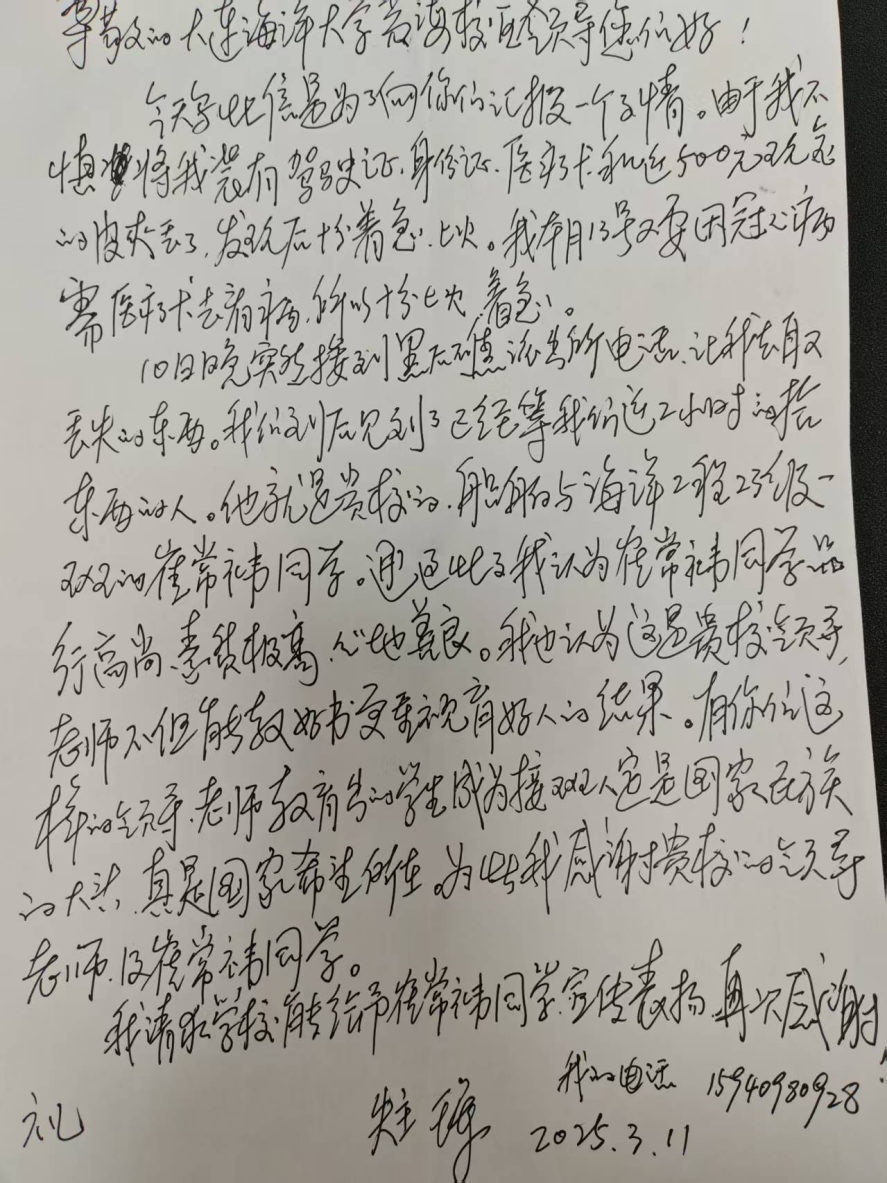 尊敬的大连海洋大学黄海校区领导您们好！
今天写此信是为了向你们汇报一个事情。由于我不
慎将我装有驾驶证、身份证、医疗卡和近500元现金
的皮夹丢了，发现后十分着急、上火。我本月13号又要因冠心病
需医疗卡去看病，所以十分上火、着急。
10日晚突然接到黑石礁派出所电话，让我去取
丢失的东西。我们到后见到了已经等我们近2小时的拾
东西的人。他就是贵校的、船舶与海洋工程23级一
班的崔常祎同学。通过此事我认为崔常祎同学品
行高尚、素质极高、心地善良。我也认为这是贵校领导、
老师不但能教好书更重视育好人的结果。有你们这
样的领导、老师教育出的学生成为接班人定是国家民族
的大法，真是国家希望所在。为此我感谢贵校的领导
老师、及崔常祎同学。
我请求学校能给予崔常祎同学宣传表扬、再次感谢！
我的电话 15940980928
礼
2025.3.11